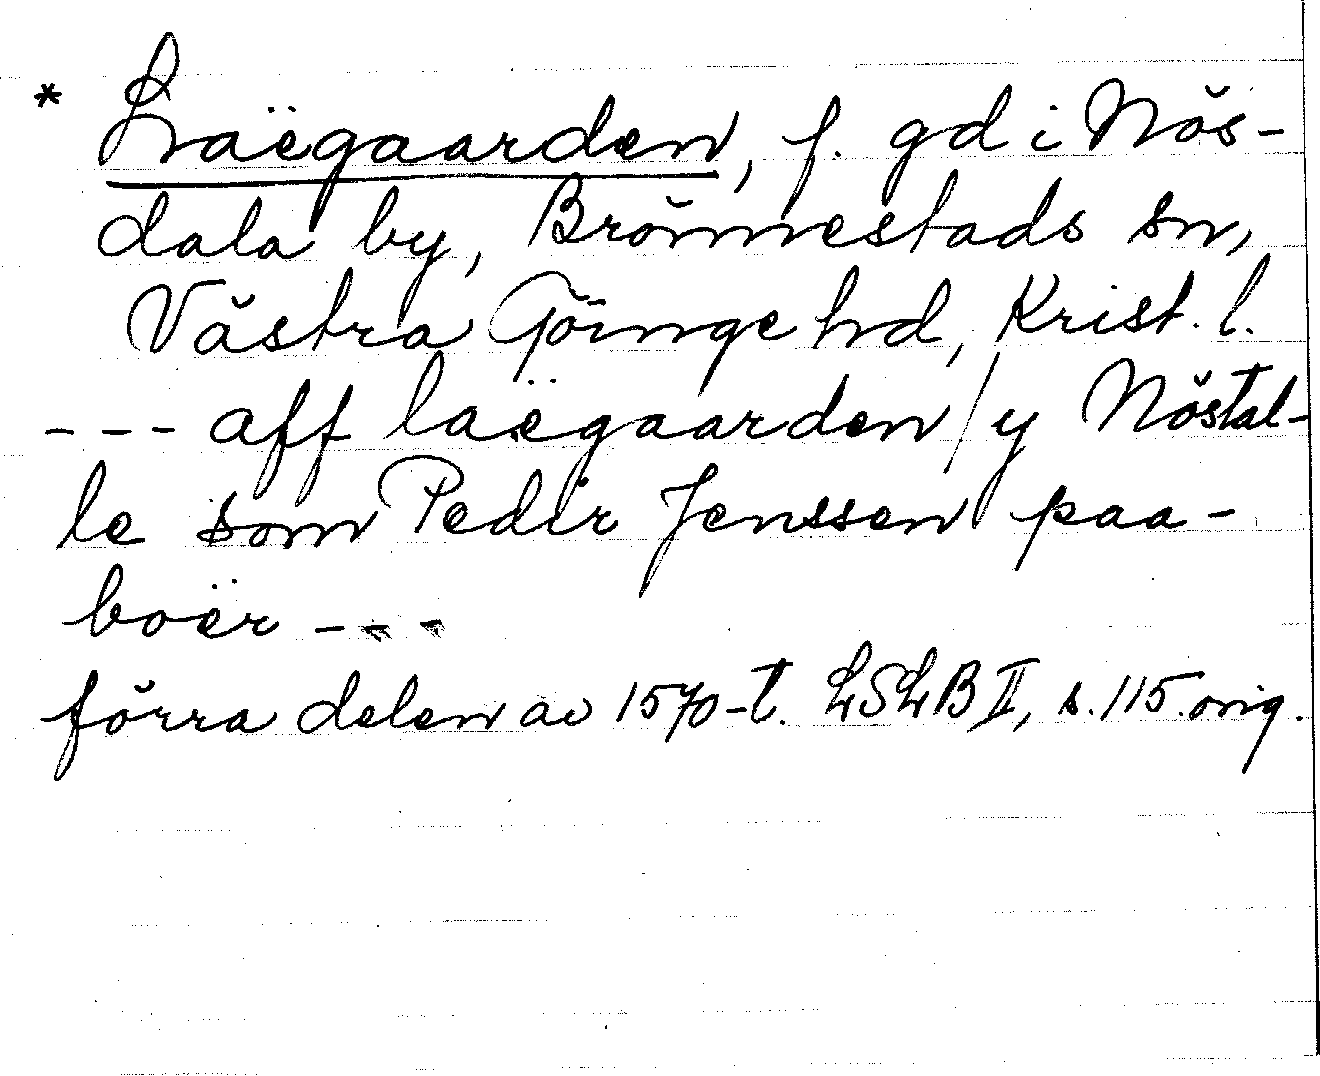 * Laëgaarden, f. gd i Nös-
dala by, Brönnestads sn,
Västra Göinge hd, Krist. l.
--- aff laëgaarden / y Nöstal-
le som Pedir Jenssen paa-
boër ---
förra delen av 1570-t. LSLB II, s. 115. orig.